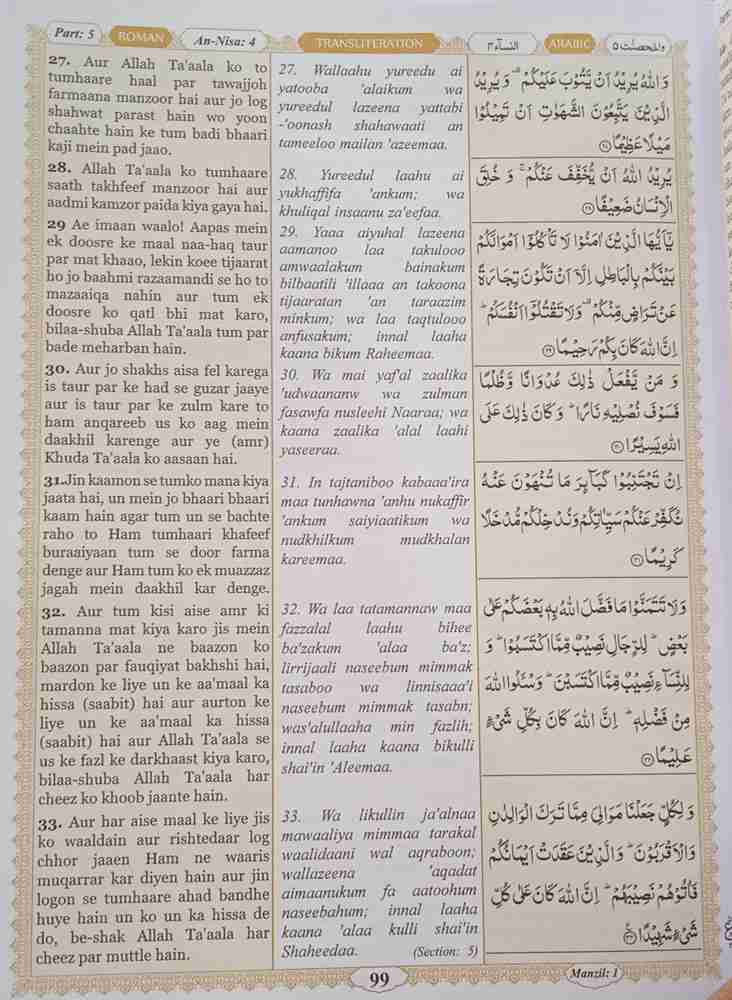 Part: 5
ROMAN
An-Nisa: 4
TRANSLITERATION
النسآء ٣
ARABIC
والمحصنٰت ۵
27. Aur Allah Ta'aala ko to
tumhaare haal par tawajjoh
farmaana manzoor hai aur jo log
shahwat parast hain wo yoon
chaahte hain ke tum badi bhaari
kaji mein pad jaao.
28. Allah Ta'aala ko tumhaare
saath takhfeef manzoor hai aur
aadmi kamzor paida kiya gaya hai.
29 Ae imaan waalo! Aapas mein
ek doosre ke maal naa-haq taur
par mat khaao, lekin koee tijaarat
ho jo baahmi razaamandi se ho to
mazaaiqa nahin aur tum ek
doosre ko qatl bhi mat karo,
bilaa-shuba Allah Ta'aala tum par
bade meharban hain.
30. Aur jo shakhs aisa fel karega
is taur par ke had se guzar jaaye
aur is taur par ke zulm kare to
ham anqareeb us ko aag mein
daakhil karenge aur ye (amr)
Khuda Ta'aala ko aasaan hai.
31.Jin kaamon se tumko mana kiya
jaata hai, un mein jo bhaari bhaari
kaam hain agar tum un se bachte
raho to Ham tumhaari khafeef
buraaiyaan tum se door farma
denge aur Ham tum ko ek muazzaz
jagah mein daakhil kar denge.
32. Aur tum kisi aise amr ki
tamanna mat kiya karo jis mein
Allah Ta'aala ne baazon ko
baazon par fauqiyat bakhshi hai,
mardon ke liye un ke aa'maal ka
hissa (saabit) hai aur aurton ke
liye un ke aa'maal ka hissa
(saabit) hai aur Allah Ta'aala se
us ke fazl ke darkhaast kiya karo,
bilaa-shuba Allah Ta'aala har
cheez ko khoob jaante hain.
33. Aur har aise maal ke liye jis
ko waaldain aur rishtedaar log
chhor jaaen Ham ne waaris
muqarrar kar diyen hain aur jin
logon se tumhaare ahad bandhe
huye hain un ko un ka hissa de
do, be-shak Allah Ta'aala har
cheez par muttle hain.
27. Wallaahu yureedu ai
yatooba 'alaikum wa
yureedul lazeena yattabi
-'oonash shahawaati an
tameeloo mailan 'azeemaa.
28. Yureedul laahu ai
yukhaffifa 'ankum; wa
khuliqal insaanu za'eefaa.
29. Yaaa aiyuhal lazeena
aamanoo laa takulooo
amwaalakum bainakum
bilbaatili 'illaaa an takoona
tijaaratan 'an taraazim
minkum; wa laa taqtulooo
anfusakum; innal laaha
kaana bikum Raheemaa.
30. Wa mai yaf'al zaalika
'udwaananw wa zulman
fasawfa nusleehi Naaraa; wa
kaana zaalika 'alal laahi
yaseeraa.
31. In tajtaniboo kabaaa'ira
maa tunhawna 'anhu nukaffir
'ankum saiyiaatikum wa
nudkhilkum mudkhalan
kareemaa.
32. Wa laa tatamannaw maa
fazzalal laahu bihee
ba'zakum 'alaa ba'z;
lirrijaali naseebum mimmak
tasaboo wa linnisaaa'i
naseebum mimmak tasabn;
was'alullaaha min fazlih;
innal laaha kaana bikulli
shai'in 'Aleemaa.
33. Wa likullin ja'alnaa
mawaaliya mimmaa tarakal
waalidaani wal aqraboon;
wallazeena 'aqadat
aimaanukum fa aatoohum
naseebahum; innal laaha
kaana 'alaa kulli shai'in
Shaheedaa.
(Section: 5)
وَاللّٰهُ يُرِيْدُ اَنْ يَّتُوْبَ عَلَيْكُمْ ۫ وَيُرِيْدُ
الَّذِيْنَ يَتَّبِعُوْنَ الشَّهَوٰتِ اَنْ تَمِيْلُوْا
مَيْلًا عَظِيْمًا ۝۲۷
يُرِيْدُ اللّٰهُ اَنْ يُّخَفِّفَ عَنْكُمْ ۚ وَ خُلِقَ
الْاِنْسَانُ ضَعِيْفًا ۝۲۸
يٰۤاَيُّهَا الَّذِيْنَ اٰمَنُوْا لَا تَاْكُلُوْۤا اَمْوَالَكُمْ
بَيْنَكُمْ بِالْبَاطِلِ اِلَّاۤ اَنْ تَكُوْنَ تِجَارَةً
عَنْ تَرَاضٍ مِّنْكُمْ ۫ وَلَا تَقْتُلُوْۤا اَنْفُسَكُمْ ؕ
اِنَّ اللّٰهَ كَانَ بِكُمْ رَحِيْمًا ۝۲۹
وَ مَنْ يَّفْعَلْ ذٰلِكَ عُدْوَانًا وَّظُلْمًا
فَسَوْفَ نُصْلِيْهِ نَارًا ؕ وَكَانَ ذٰلِكَ عَلَى
اللّٰهِ يَسِيْرًا ۝۳۰
اِنْ تَجْتَنِبُوْا كَبَآىِٕرَ مَا تُنْهَوْنَ عَنْهُ
نُكَفِّرْ عَنْكُمْ سَيِّاٰتِكُمْ وَنُدْخِلْكُمْ مُّدْخَلًا
كَرِيْمًا ۝۳۱
وَلَا تَتَمَنَّوْا مَا فَضَّلَ اللّٰهُ بِهٖ بَعْضَكُمْ عَلٰى
بَعْضٍ ؕ لِلرِّجَالِ نَصِيْبٌ مِّمَّا اكْتَسَبُوْا ؕ وَ
لِلنِّسَآءِ نَصِيْبٌ مِّمَّا اكْتَسَبْنَ ؕ وَسْـَٔلُوا اللّٰهَ
مِنْ فَضْلِهٖ ؕ اِنَّ اللّٰهَ كَانَ بِكُلِّ شَيْءٍ
عَلِيْمًا ۝۳۲
وَ لِكُلٍّ جَعَلْنَا مَوَالِيَ مِمَّا تَرَكَ الْوَالِدٰنِ
وَالْاَقْرَبُوْنَ ؕ وَالَّذِيْنَ عَقَدَتْ اَيْمَانُكُمْ
فَاٰتُوْهُمْ نَصِيْبَهُمْ ؕ اِنَّ اللّٰهَ كَانَ عَلٰى كُلِّ
شَيْءٍ شَهِيْدًا ۝۳۳
99
Manzil: 1